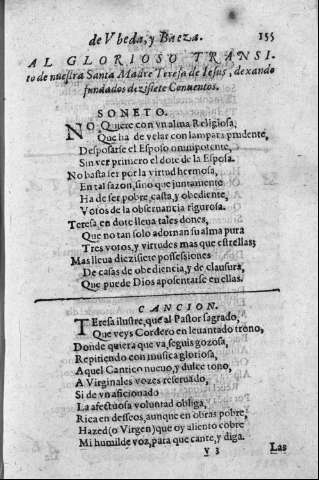 de Vbeda, y Baeza. 155
AL GLORIOSO TRANSI-
to de nuestra Santa Madre Teresa de Iesus, dexando
fundados dezisiete Conuentos.
SONETO.
NO Quiere con vn alma Religiosa;
Que ha de velar con lampara prudente,
Desposarse el Esposo omnipotente,
Sin ver primero el dote de la Esposa.
No basta ser por la virtud hermosa,
En tal sazon, sino que juntamente
Ha de ser pobre, casta, y obediente,
Votos de la obseruancia rigurosa.
Teresa en dote lleua tales dones,
Que no tan solo adornan su alma pura
Tres votos, y virtudes mas que estrellas;
Mas lleua diezisiete possessiones
De casas de obediencia, y de clausura,
Que puede Dios aposentarse en ellas.
CANCION.
TEresa ilustre, que al Pastor sagrado,
Que veys Cordero en leuantado trono,
Donde quiera que va, seguis gozosa,
Repitiendo con musica gloriosa,
Aquel Cantico nueuo, y dulce tono,
A Virginales vozes reseruado,
Si de vn aficionado
La afectuosa voluntad obliga,
Rica en desseos, aunque en obras pobre,
Hazed (o Virgen) que oy aliento cobre
Mi humilde voz, para que cante, y diga.
V 3 Las